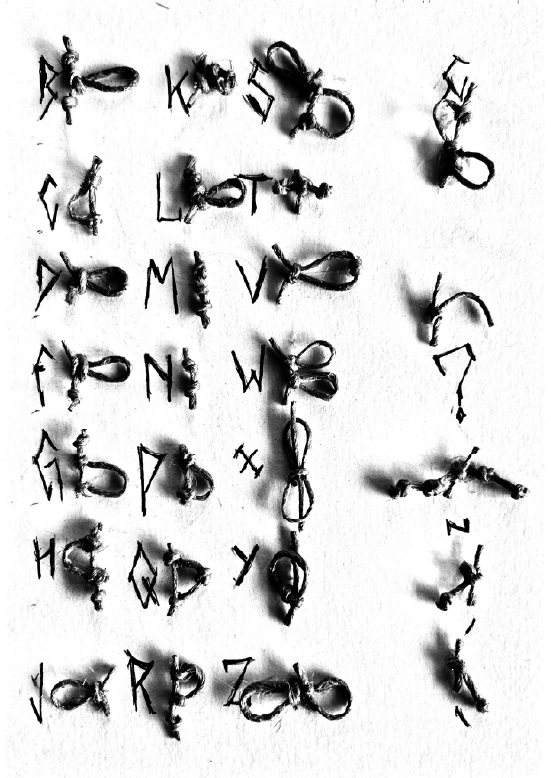 B K S
C L T
D M V
F N W
G P X
H Q Y
J R Z
?